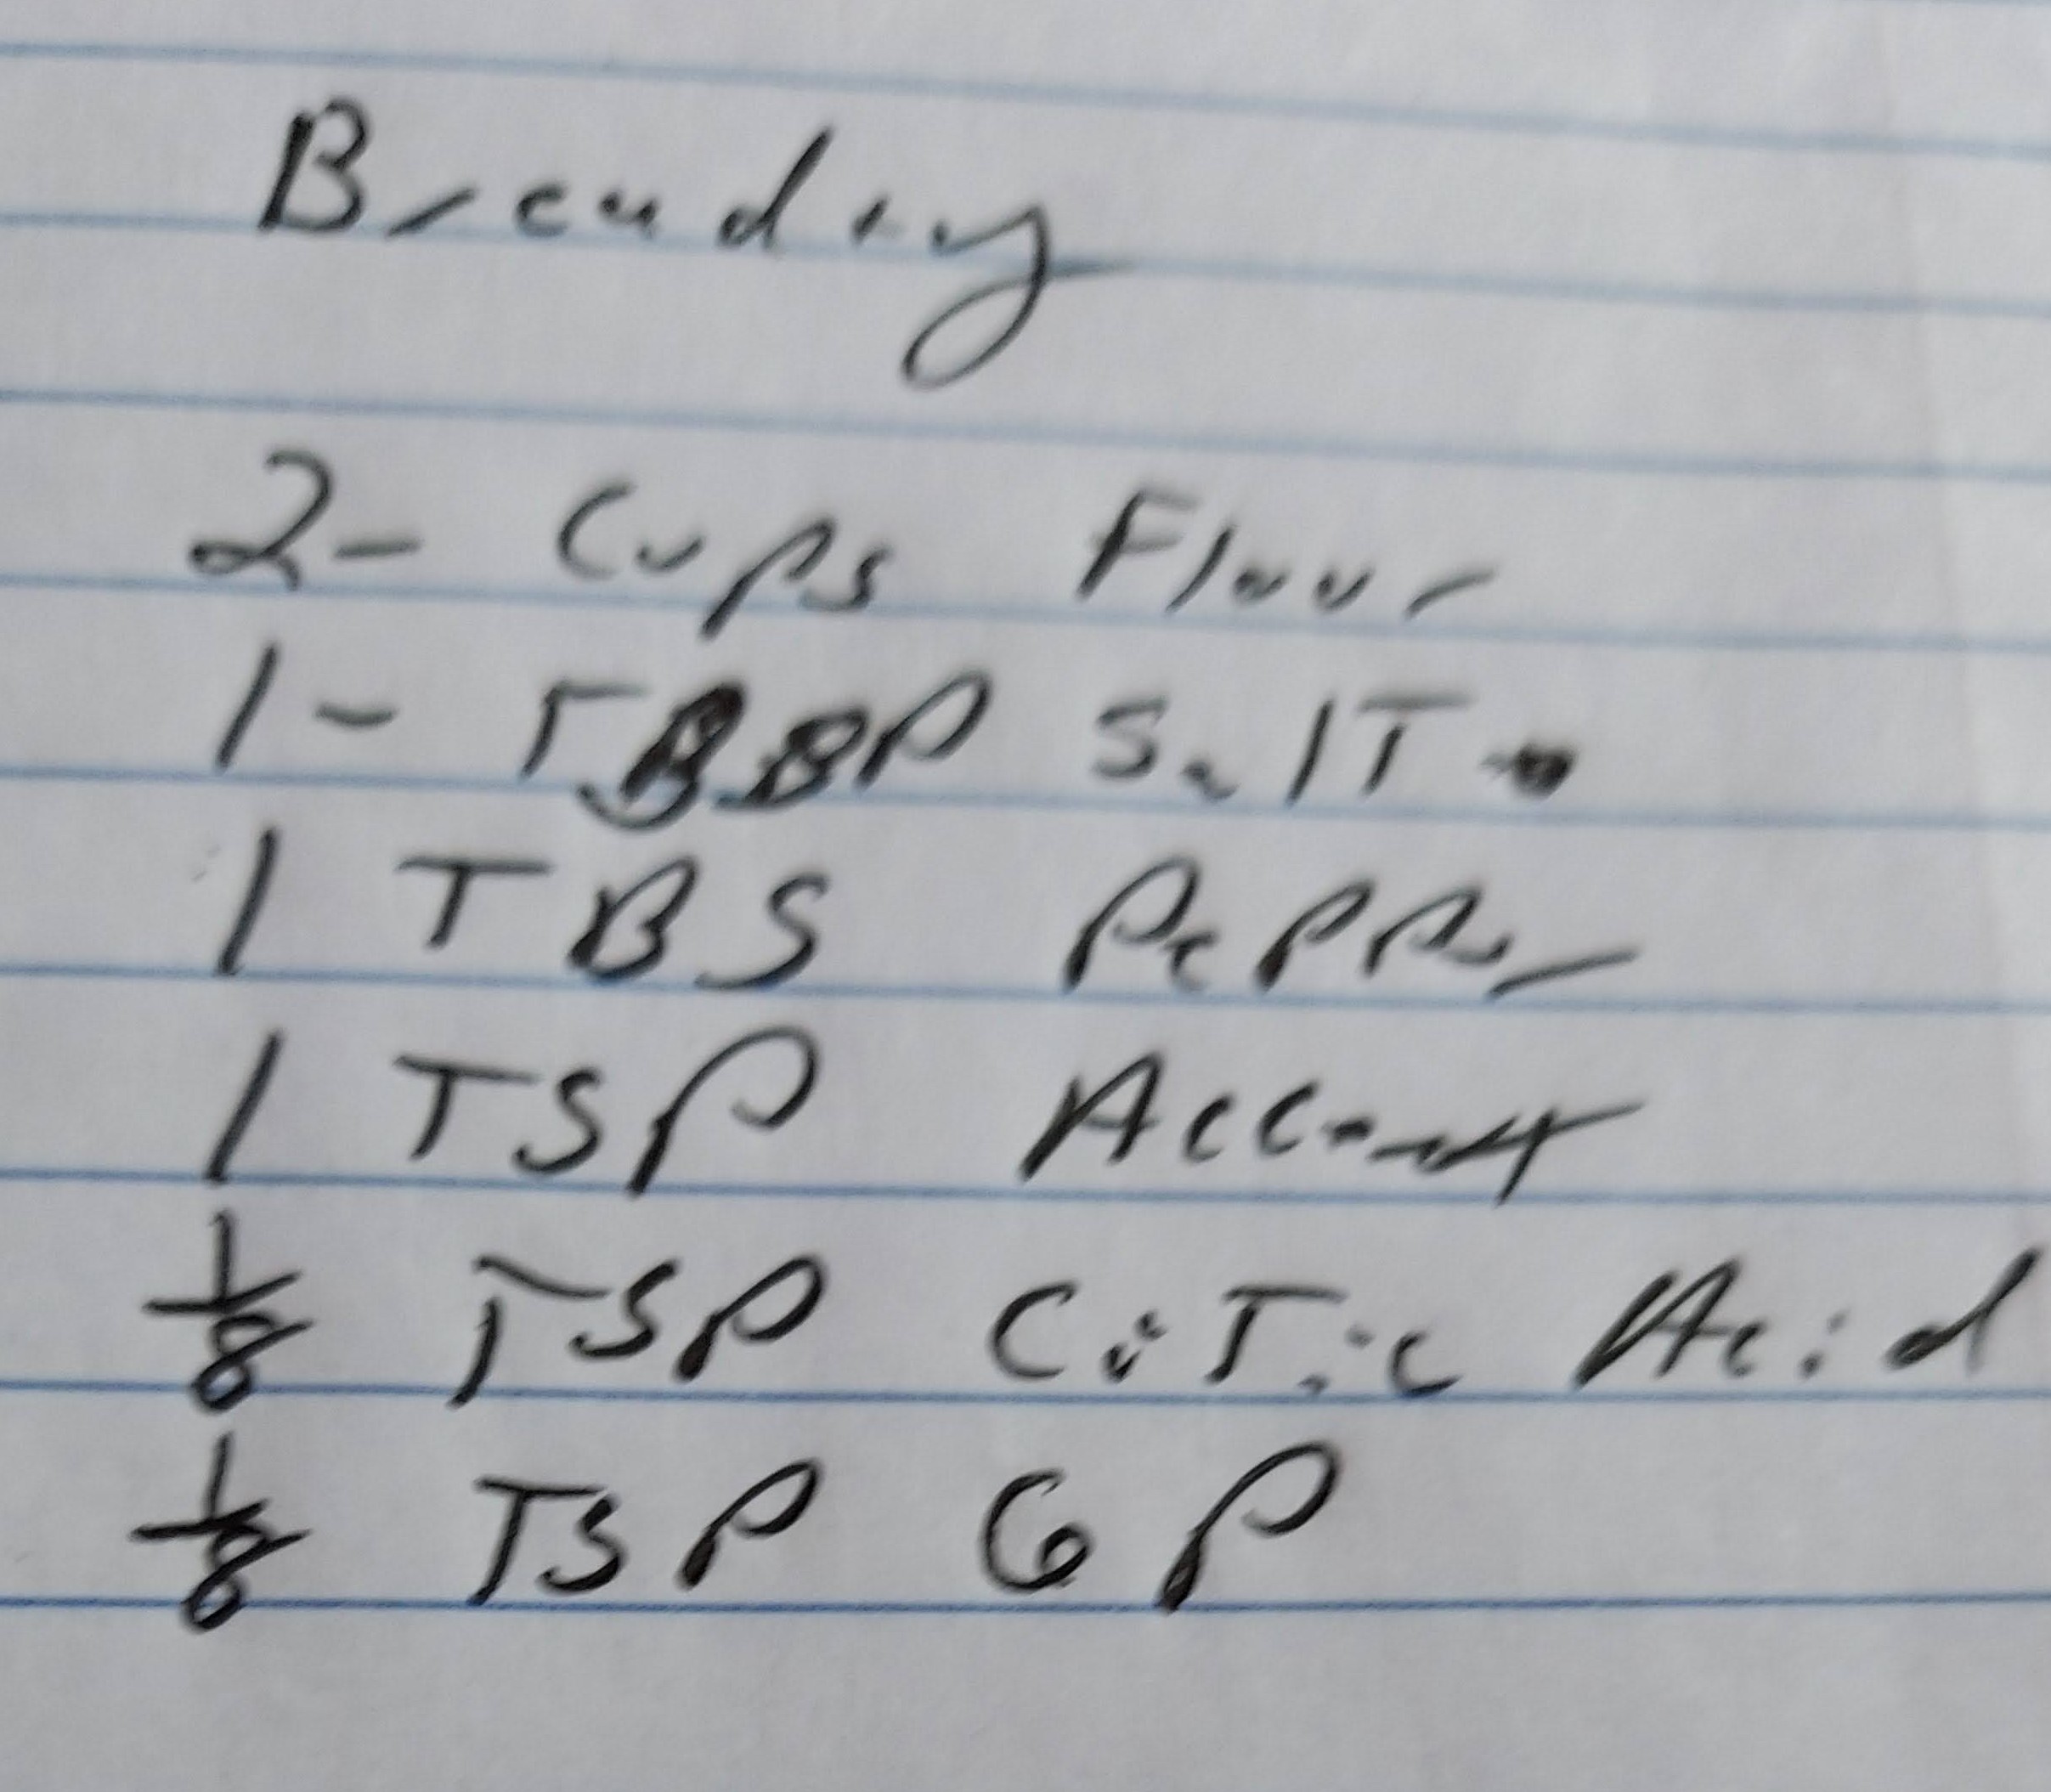 Breading
2- Cups Flour
1- TBBP SalT
1 TBS PePPer
1 TSP Accent
1/8 TSP CiTic Acid
1/8 TSP GP